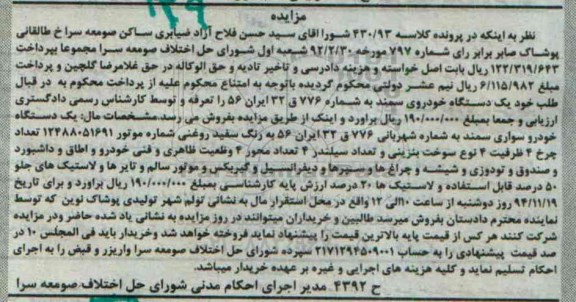 ۱۲۹
مزایده
نظر به اینکه در پرونده کلاسه ۴۳۰/۹۳ شورا اقای سید حسن فلاح آزاد ضیابری ساکن صومعه سرا خ طالقانی
پوشاک صابر برابر رای شماره ۷۹۷ مورخه ۹۲/۲/۳۰ شعبه اول شورای حل اختلاف صومعه سرا مجموعا بپرداخت
۱۲۲/۳۱۹/۶۴۳ ریال بابت اصل خواسته و هزینه دادرسی و تاخیر تادیه و حق الوکاله در حق غلامرضا گلچین و پرداخت
مبلغ ۶/۱۱۵/۹۸۲ ریال نیم عشر دولتی محکوم گردیده باتوجه به امتناع محکوم علیه از پرداخت محکوم به در قبال
طلب خود یک دستگاه خودروی سمند به شماره ۷۷۶ ق ۳۲ ایران ۵۶ را تعرفه و توسط کارشناس رسمی دادگستری
ارزیابی و جمعا بمبلغ ۱۹۰/۰۰۰/۰۰۰ ریال براورد و اینک از طریق مزایده بفروش می رسد.مشخصات مال: یک دستگاه
خودرو سواری سمند به شماره شهربانی ۷۷۶ ق ۳۲ ایران ۵۶ به رنگ سفید روغنی شماره موتور ۱۲۴۸۸۰۵۱۶۹۱ تعداد
چرخ ۴ ظرفیت ۴ نوع سوخت بنزینی و تعداد سیلندر ۴ تعداد محور ۲ وظعیت ظاهری و فنی خودرو و اطاق و داشبورد
و صندوق و تودوزی و شیشه و چراغ ها و سپرها و دیفرانسیل و گیربکس و موتور سالم و تایر ها و لاستیک های جلو
۵۰ درصد قابل استفاده و لاستیک ها ۲۰ درصد ارزش پایه کارشناسی بمبلغ ۱۹۰/۰۰۰/۰۰۰ ریال براورد و برای تاریخ
۹۴/۱۱/۱۹ روز دوشنبه از ساعت ۱۰الی ۱۲ واقع در محل استقرار مال به نشانی تولم شهر تولیدی پوشاک نوین که توسط
نماینده محترم دادستان بفروش میرسد طالبین و خریداران میتوانند در روز مزایده به نشانی یاد شده حاضر ودر مزایده
شرکت کنند هر کس از قیمت پایه بالاترین قیمت را پیشنهاد نماید فروخته خواهد شد وخریدار باید فی المجلس ۱۰ در
صد قیمت پیشنهادی را به حساب ۲۱۷۱۲۹۴۵۰۹۰۰۱ سپرده شورای حل اختلاف صومعه سرا واریزر و قبض را به اجرای
احکام تسلیم نماید و کلیه هزینه های اجرایی و غیره بر عهده خریدار میباشد.
ح ۴۳۹۲ مدیر اجرای احکام مدنی شورای حل اختلاف صومعه سرا